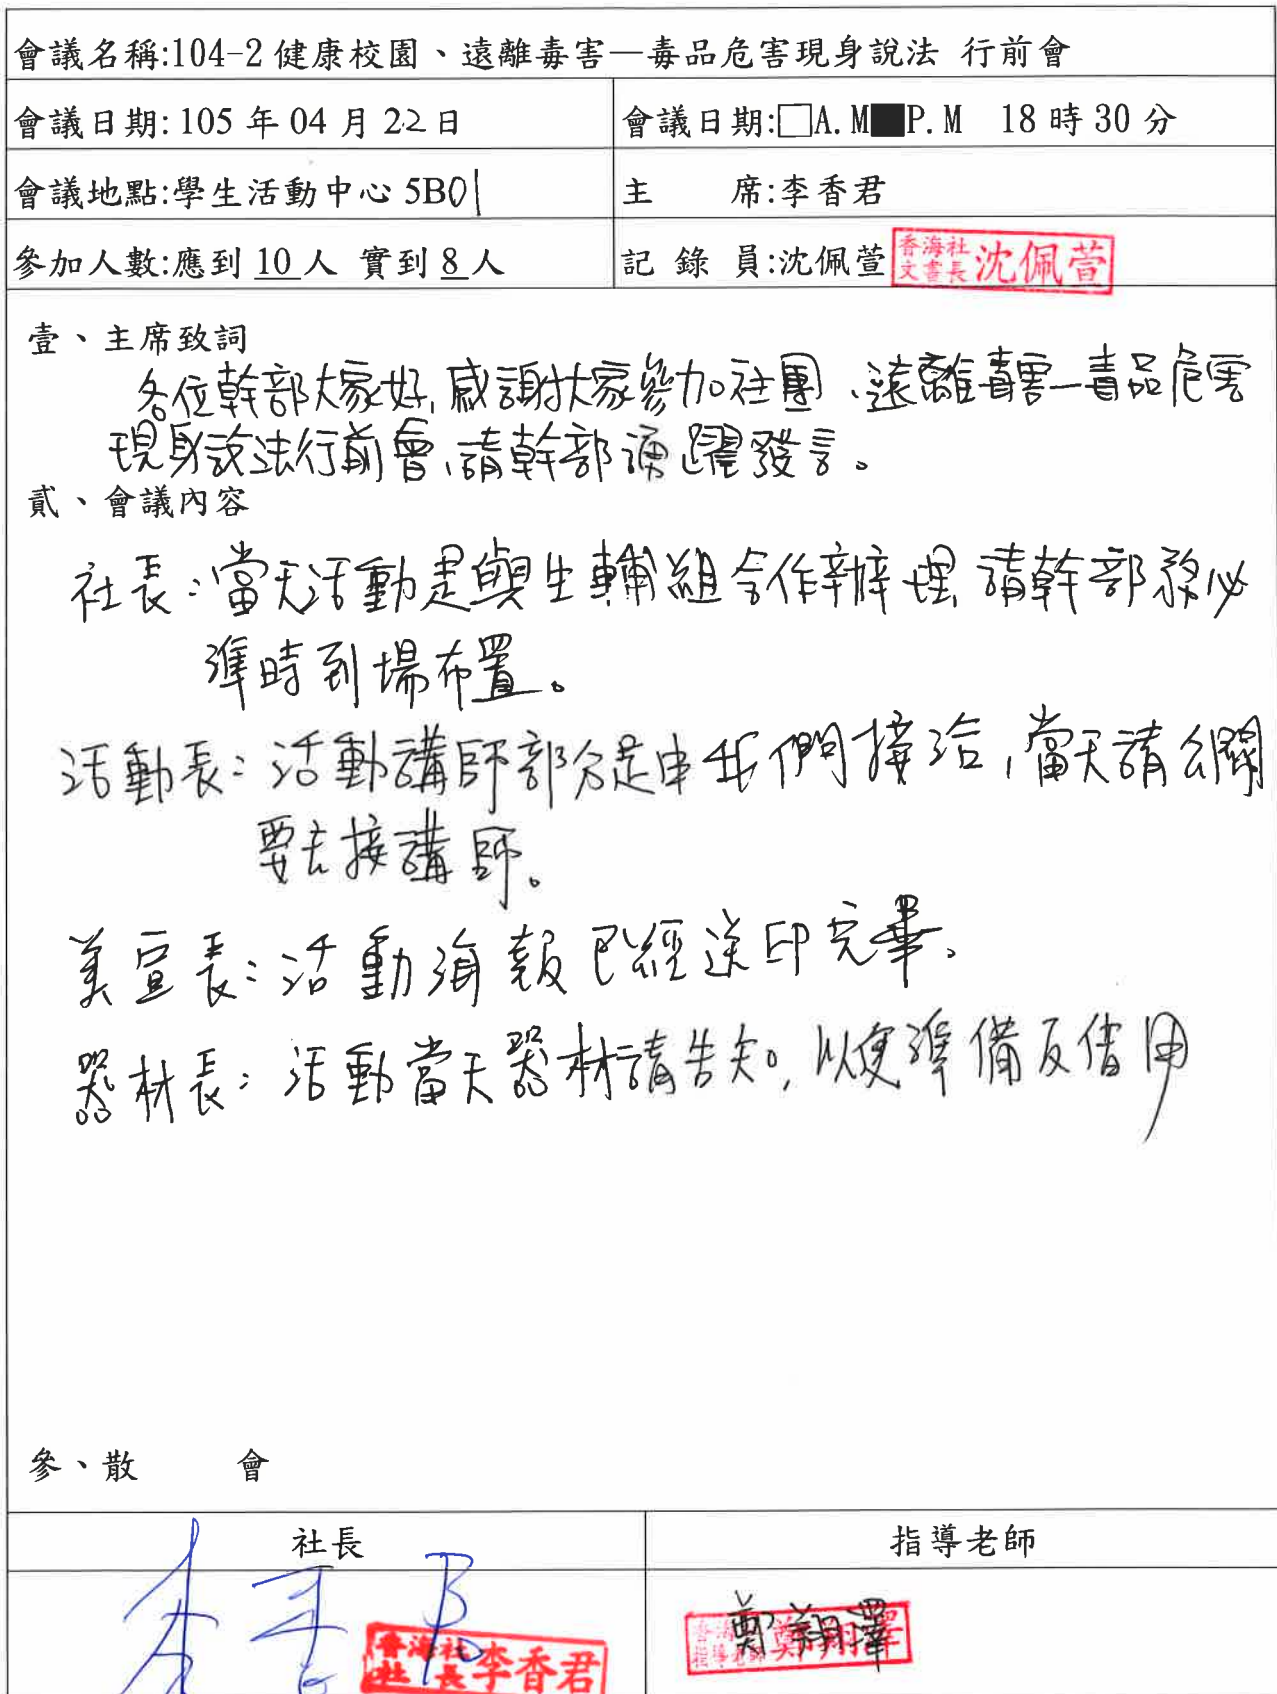 會議名稱:104-2健康校園、遠離毒害—毒品危害現身說法 行前會
會議日期:105年04月22日
會議日期:□A.M■P.M 18時30分
會議地點:學生活動中心5B01
主 席:李香君
參加人數:應到10人 實到8人
記錄員:沈佩萱
香海社
文書長
沈佩萱
壹、主席致詞
各位幹部大家好,感謝大家參加社團、遠離毒害—毒品危害
現身說法行前會,請幹部踴躍發言。
貳、會議內容
社長:當天活動是與生輔組合作辦理,請幹部務必
準時到場布置。
活動長:活動講師部分是由我們接洽,當天請公關
要去接講師。
美宣長:活動海報已經送印完畢。
器材長:活動當天器材請告知,以便準備及借用
參、散 會
社長
指導老師
李香君
香海社
社長
李香君
鄭翔澤
香海社
指導老師
鄭翔澤